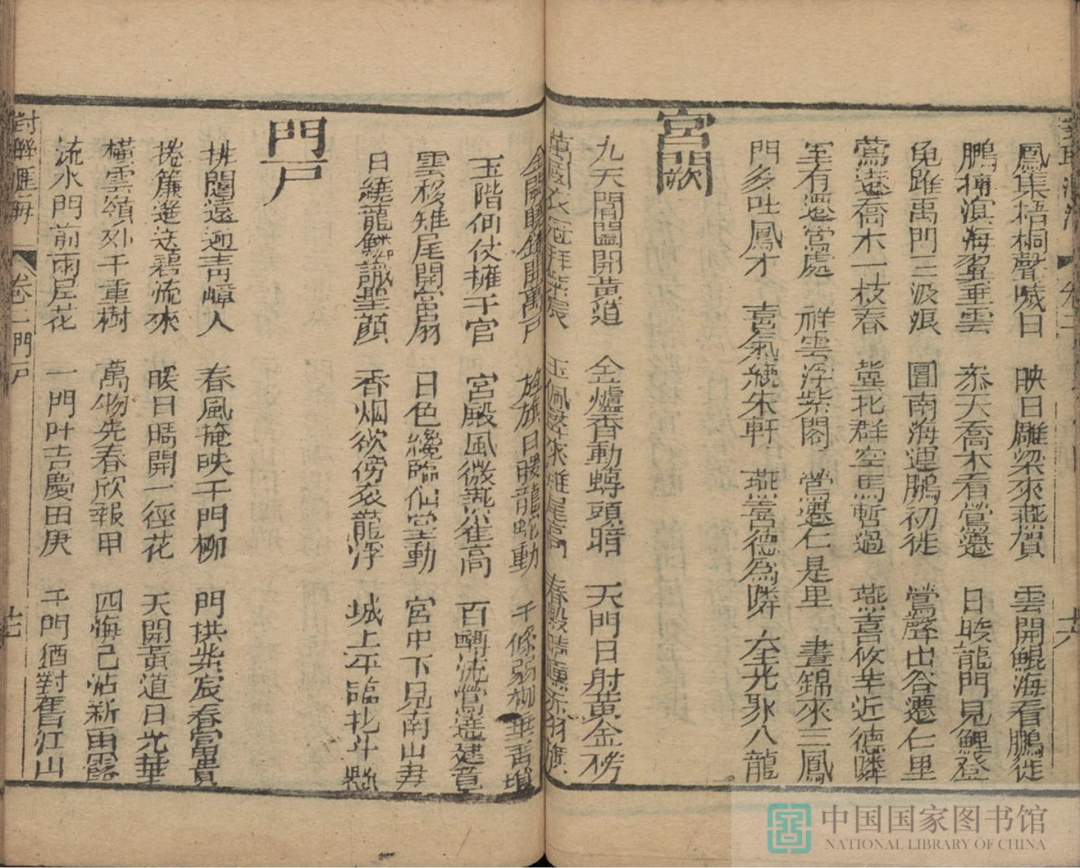 鳳集梧桐聲喊日 映日雕梁來燕賀 雲開鯤海看鵬徙
鵬摶滇海翼垂雲 忝天喬木看鶯遷 日晈龍門見鯉登
魚雖禹門三汲浪 圖南海運鵬初徙 鶯聲出谷遷仁里
鶯遠喬木一枝春 冀北群空馬暫過 燕喜攸芋近德隣
室有遷鶯處 祥雲浮紫閣 鶯遷仁是里 晝錦來三鳳
門多吐鳳才 喜氣繞朱軒 燕喜德爲隣 奎光聚八龍
宮闕
九天閶闔開黃道 金爐香動螭頭暗 天門日射黃金榜
萬國衣冠拜紫宸 玉佩 雉尾高 春殿晴曛赤羽旗
金闕曉鐘開萬戶 旌旗日暖龍蛇動 千條弱柳垂青瑣
玉階何仗擁千官 宮殿風微燕雀高 百囀流鶯遶建章
雲移雉尾開宮扇 日色纔臨仙堂動 宮中下見南山尹
日繞龍鱗識聖顏 香烟欲傍袞龍浮 城上平臨北斗懸
門戶
排闥遠迎青嶂人 春風掩映千門柳 門拱紫宸春富貴
捲簾遙送碧流來 暖日晴開一徑花 天開黃道日光華
橫雲嶺列千重樹 萬物先春欣報甲 四海已沾新雨露
流水門前雨岸花 一門叶吉慶由庚 千門猶對舊江山
對聯滙海 卷二門戶 十七
中国国家图书馆
NATIONAL LIBRARY OF CHINA